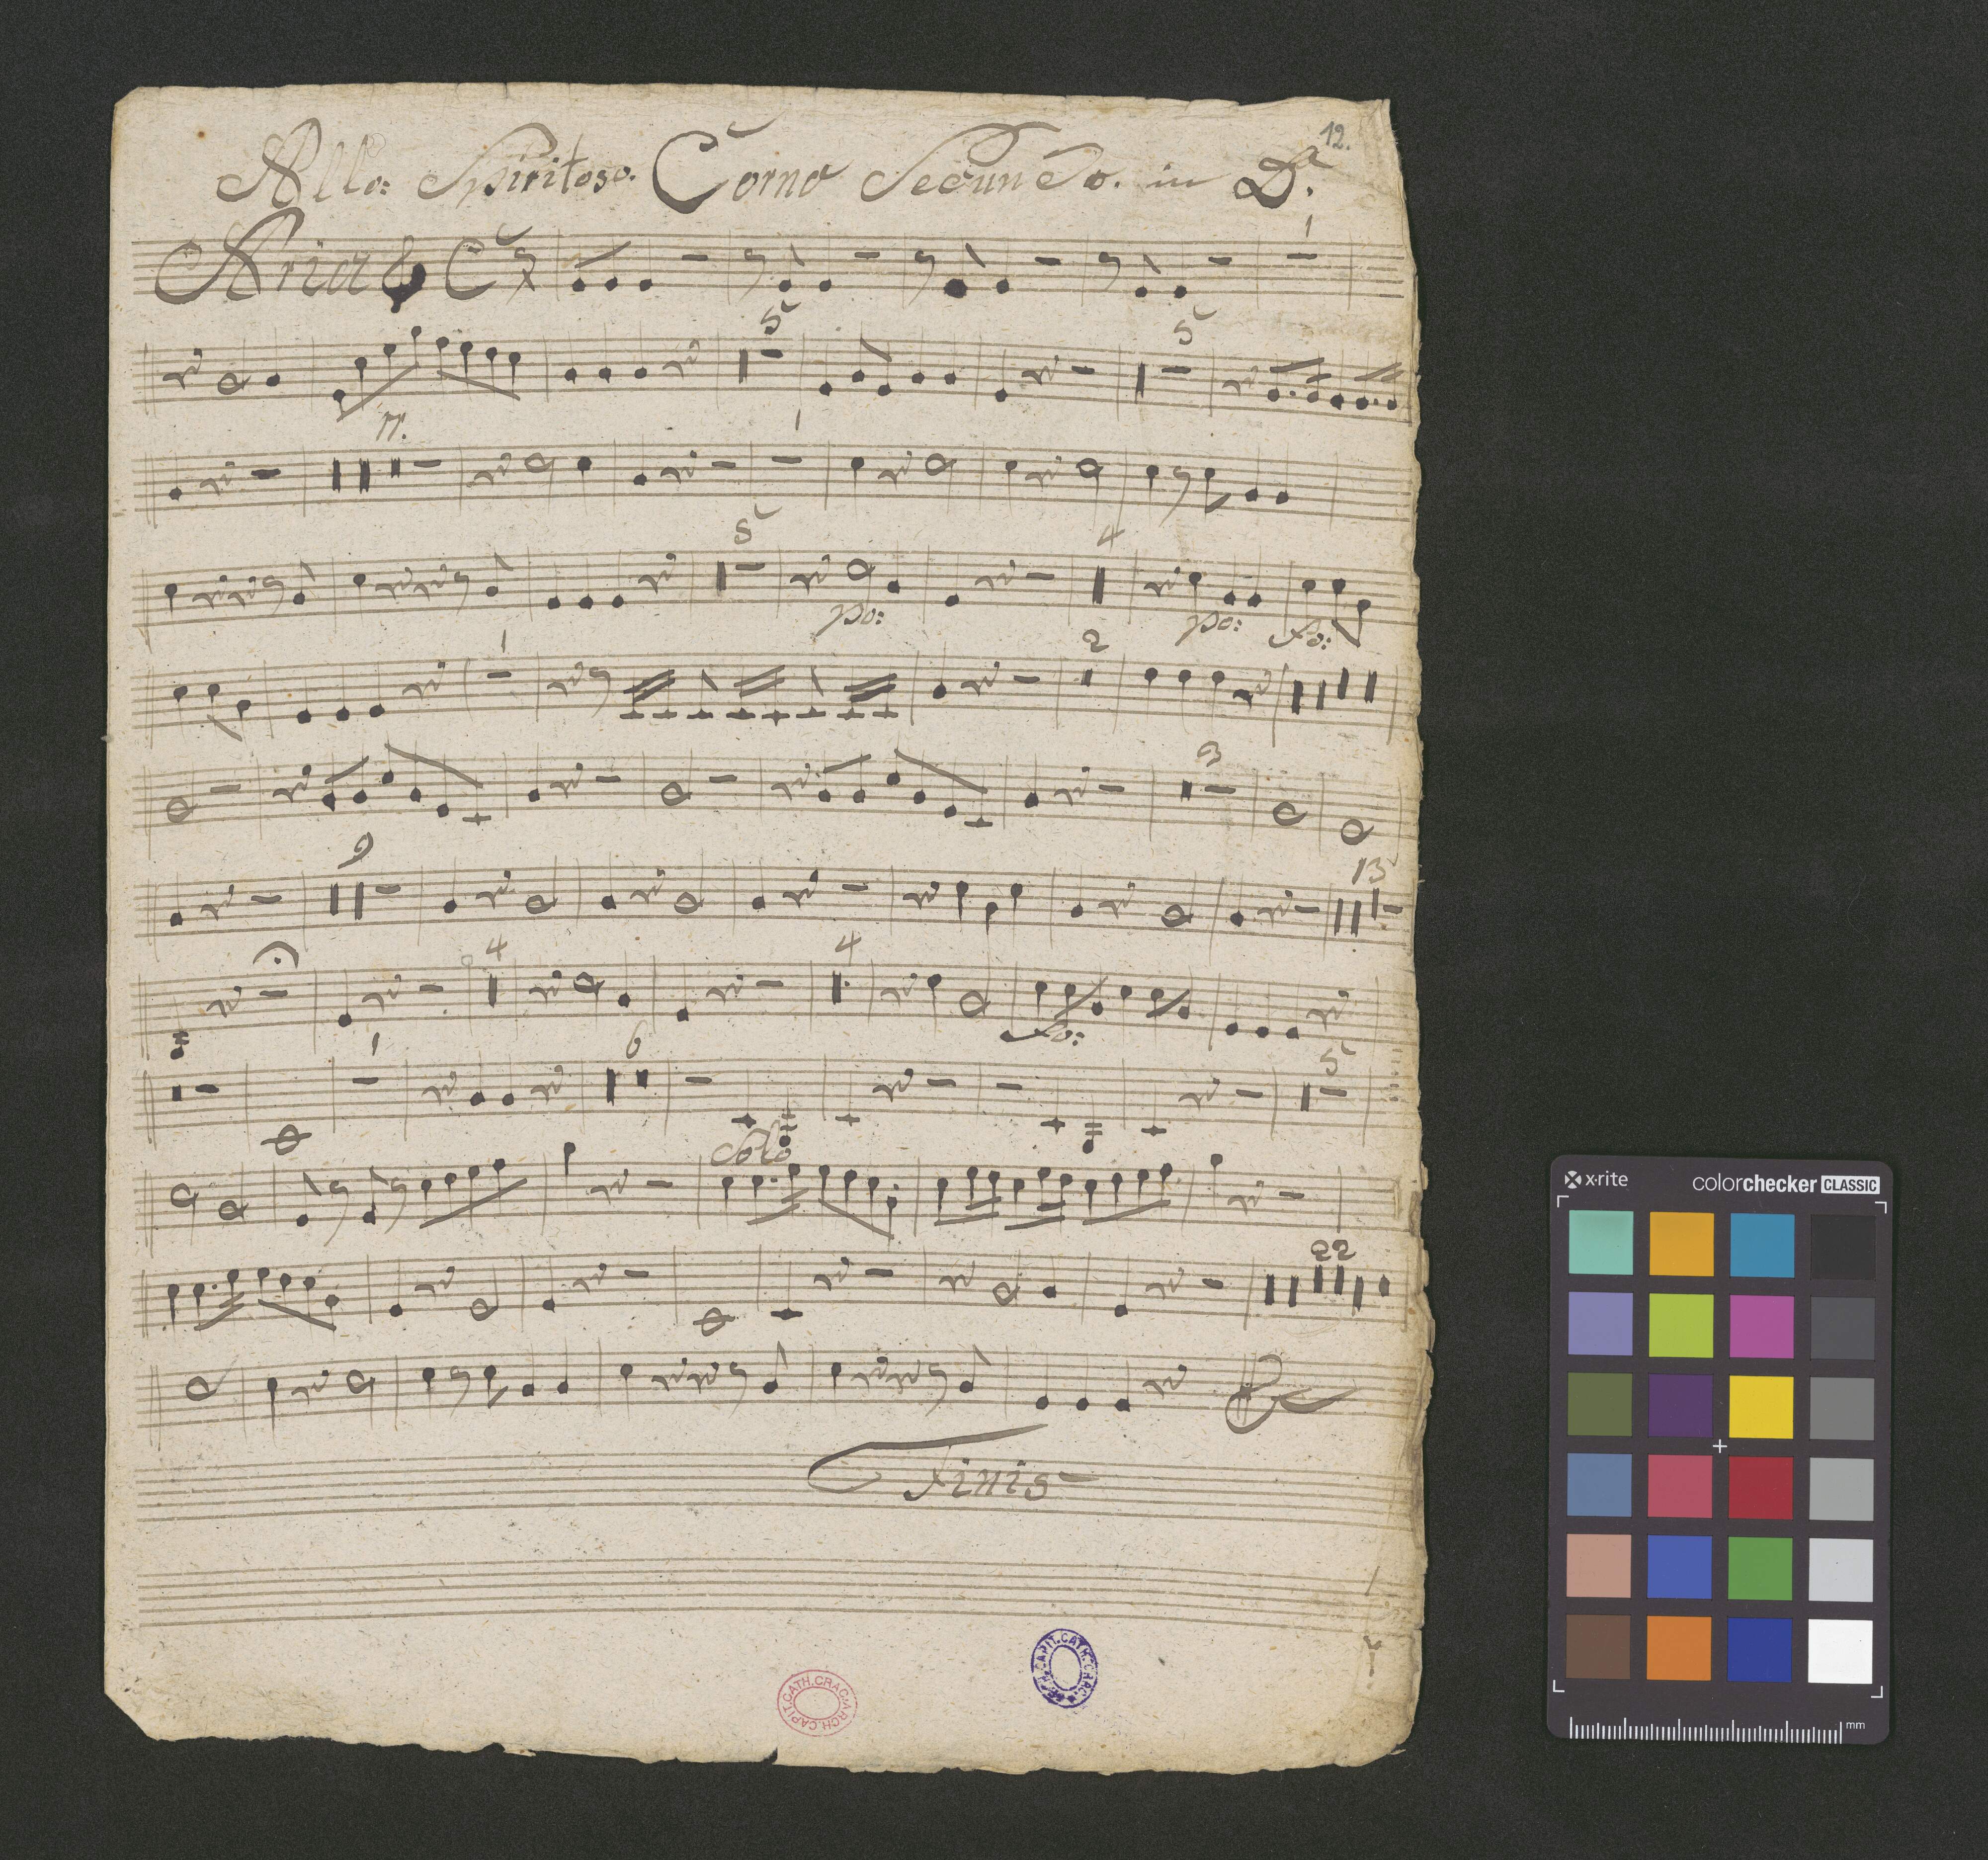 12.
Allo: Spiritoso. Corno Secundo. in D.
Aria C
1
5 5
17. 1
5 4
po: po: fo:
1 2
3
9 13
4 4
fo:
1 6 5
Solo
22
Finis
ARCH.CAPIT.CATH.CRAC.
ARCH.CAPIT.CATH.CRAC.
x·rite colorchecker CLASSIC
mm